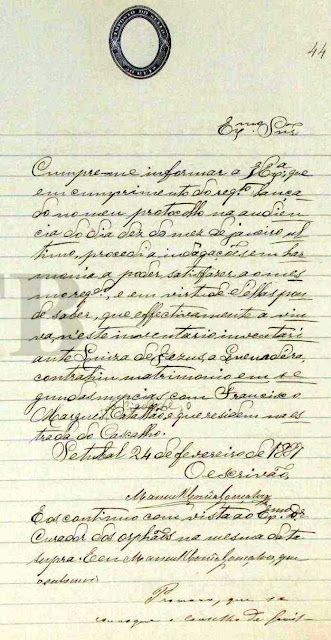 44
Exmo Snr
Cumpre-me informar a V Exa, que
em cumprimento do reqo. lança
do no meu protocollo na audien
cia do dia dez do mez de janeiro, ul
timo, procedi a indagações em har
monia a poder satisfazer ao mes
mo reqo., e em virtude d'ellas pu
de saber, que effectivamente a viu
va, n'este inventario inventari
ante Luiza de Jezus, a
contrahiu matrimonio em se
gundas nupcias com Francisco
Marques Catalão, e que residem na es
trada do Cascalho.
Setubal 24 de fevereiro de 1897
O escrivão,
Manuel Maria Gonçalves
E os continúo com vista ao Exmo Dr
Curador dos orphãos na mesma data
supra. E eu Manuel Maria Gonçalves, que
o subscrevi
que se
convoque o conselho de fami-